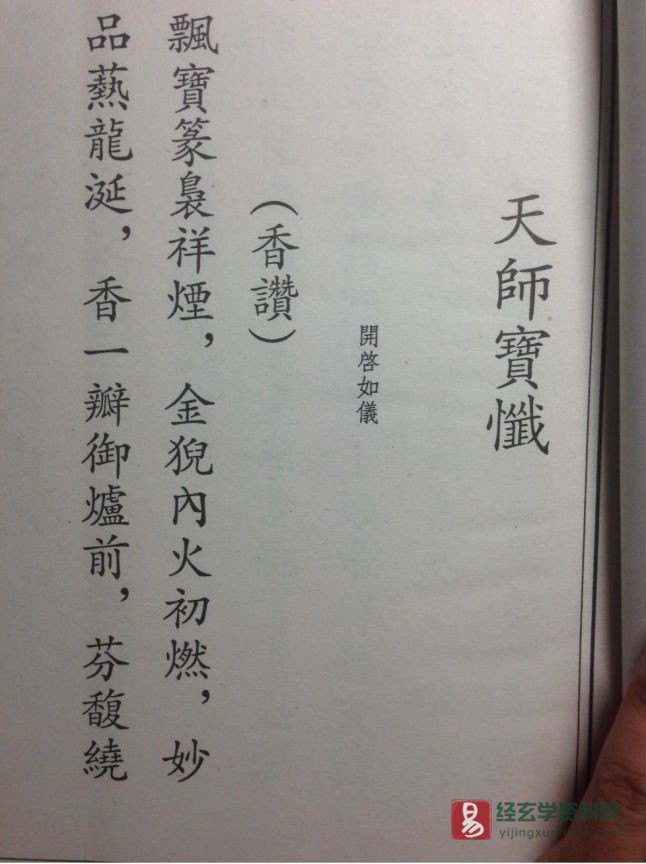 天師寶懺
開啓如儀
(香讚)
飄寶篆裊祥煙，金猊內火初燃，妙
品爇龍涎，香一瓣御爐前，芬馥繞
易
经玄学资料网